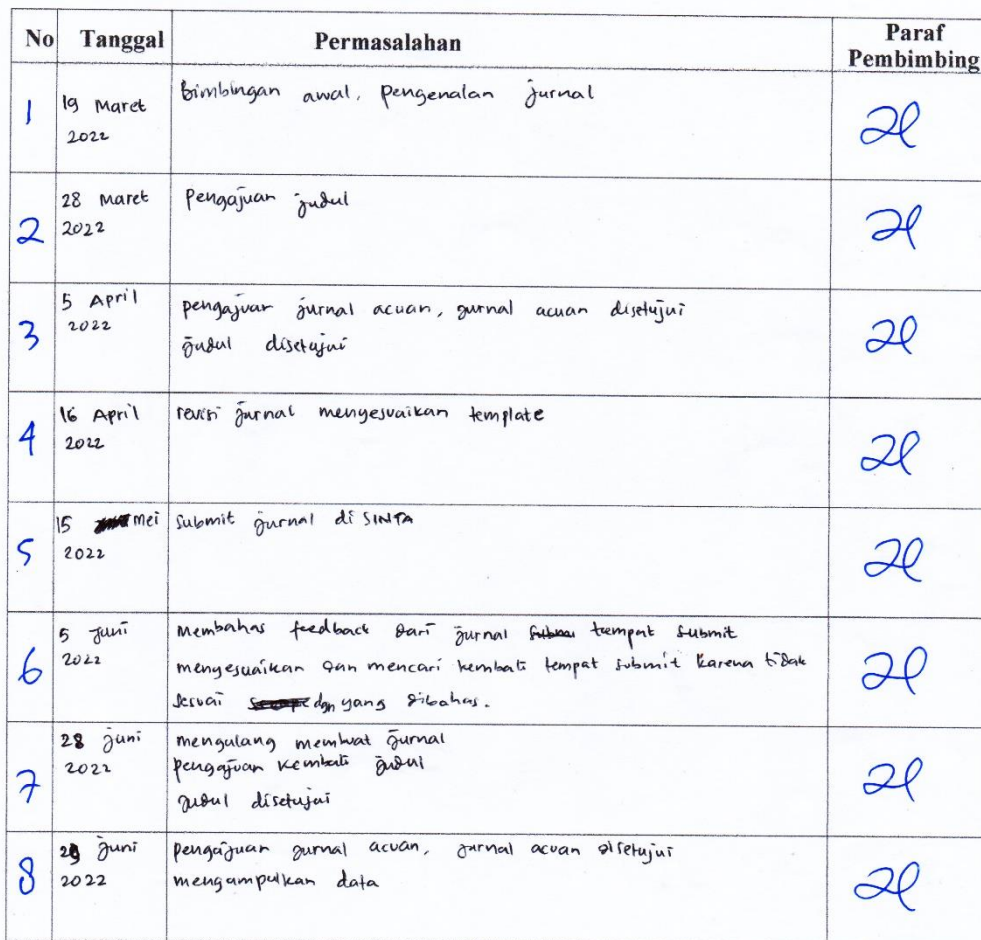 No Tanggal Permasalahan Paraf Pembimbing
1 19 Maret 2022 Bimbingan awal, pengenalan jurnal
2 28 Maret 2022 Pengajuan judul
3 5 April 2022 pengajuan jurnal acuan, jurnal acuan disetujui
judul disetujui
4 16 April 2022 revisi jurnal menyesuaikan template
5 15 mei 2022 Submit jurnal di SINTA
6 5 juni 2022 Membahas feedback dari jurnal tempat submit
menyesuaikan dan mencari kembali tempat submit karena tidak
sesuai dgn yang dibahas.
7 28 juni 2022 mengulang membuat jurnal
pengajuan kembali judul
judul disetujui
8 29 juni 2022 pengajuan jurnal acuan, jurnal acuan disetujui
mengumpulkan data